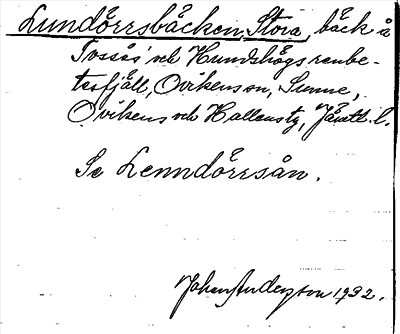 Lundörrsbäcken, Stora, bäck å
Tossås' och Hundshögs renbe-
tesfjäll, Ovikens sn, Sunne,
Ovikens och Hallens tg, Jämtl. l.
Se Lenndörrsån.
Johan Anderzon 1932.